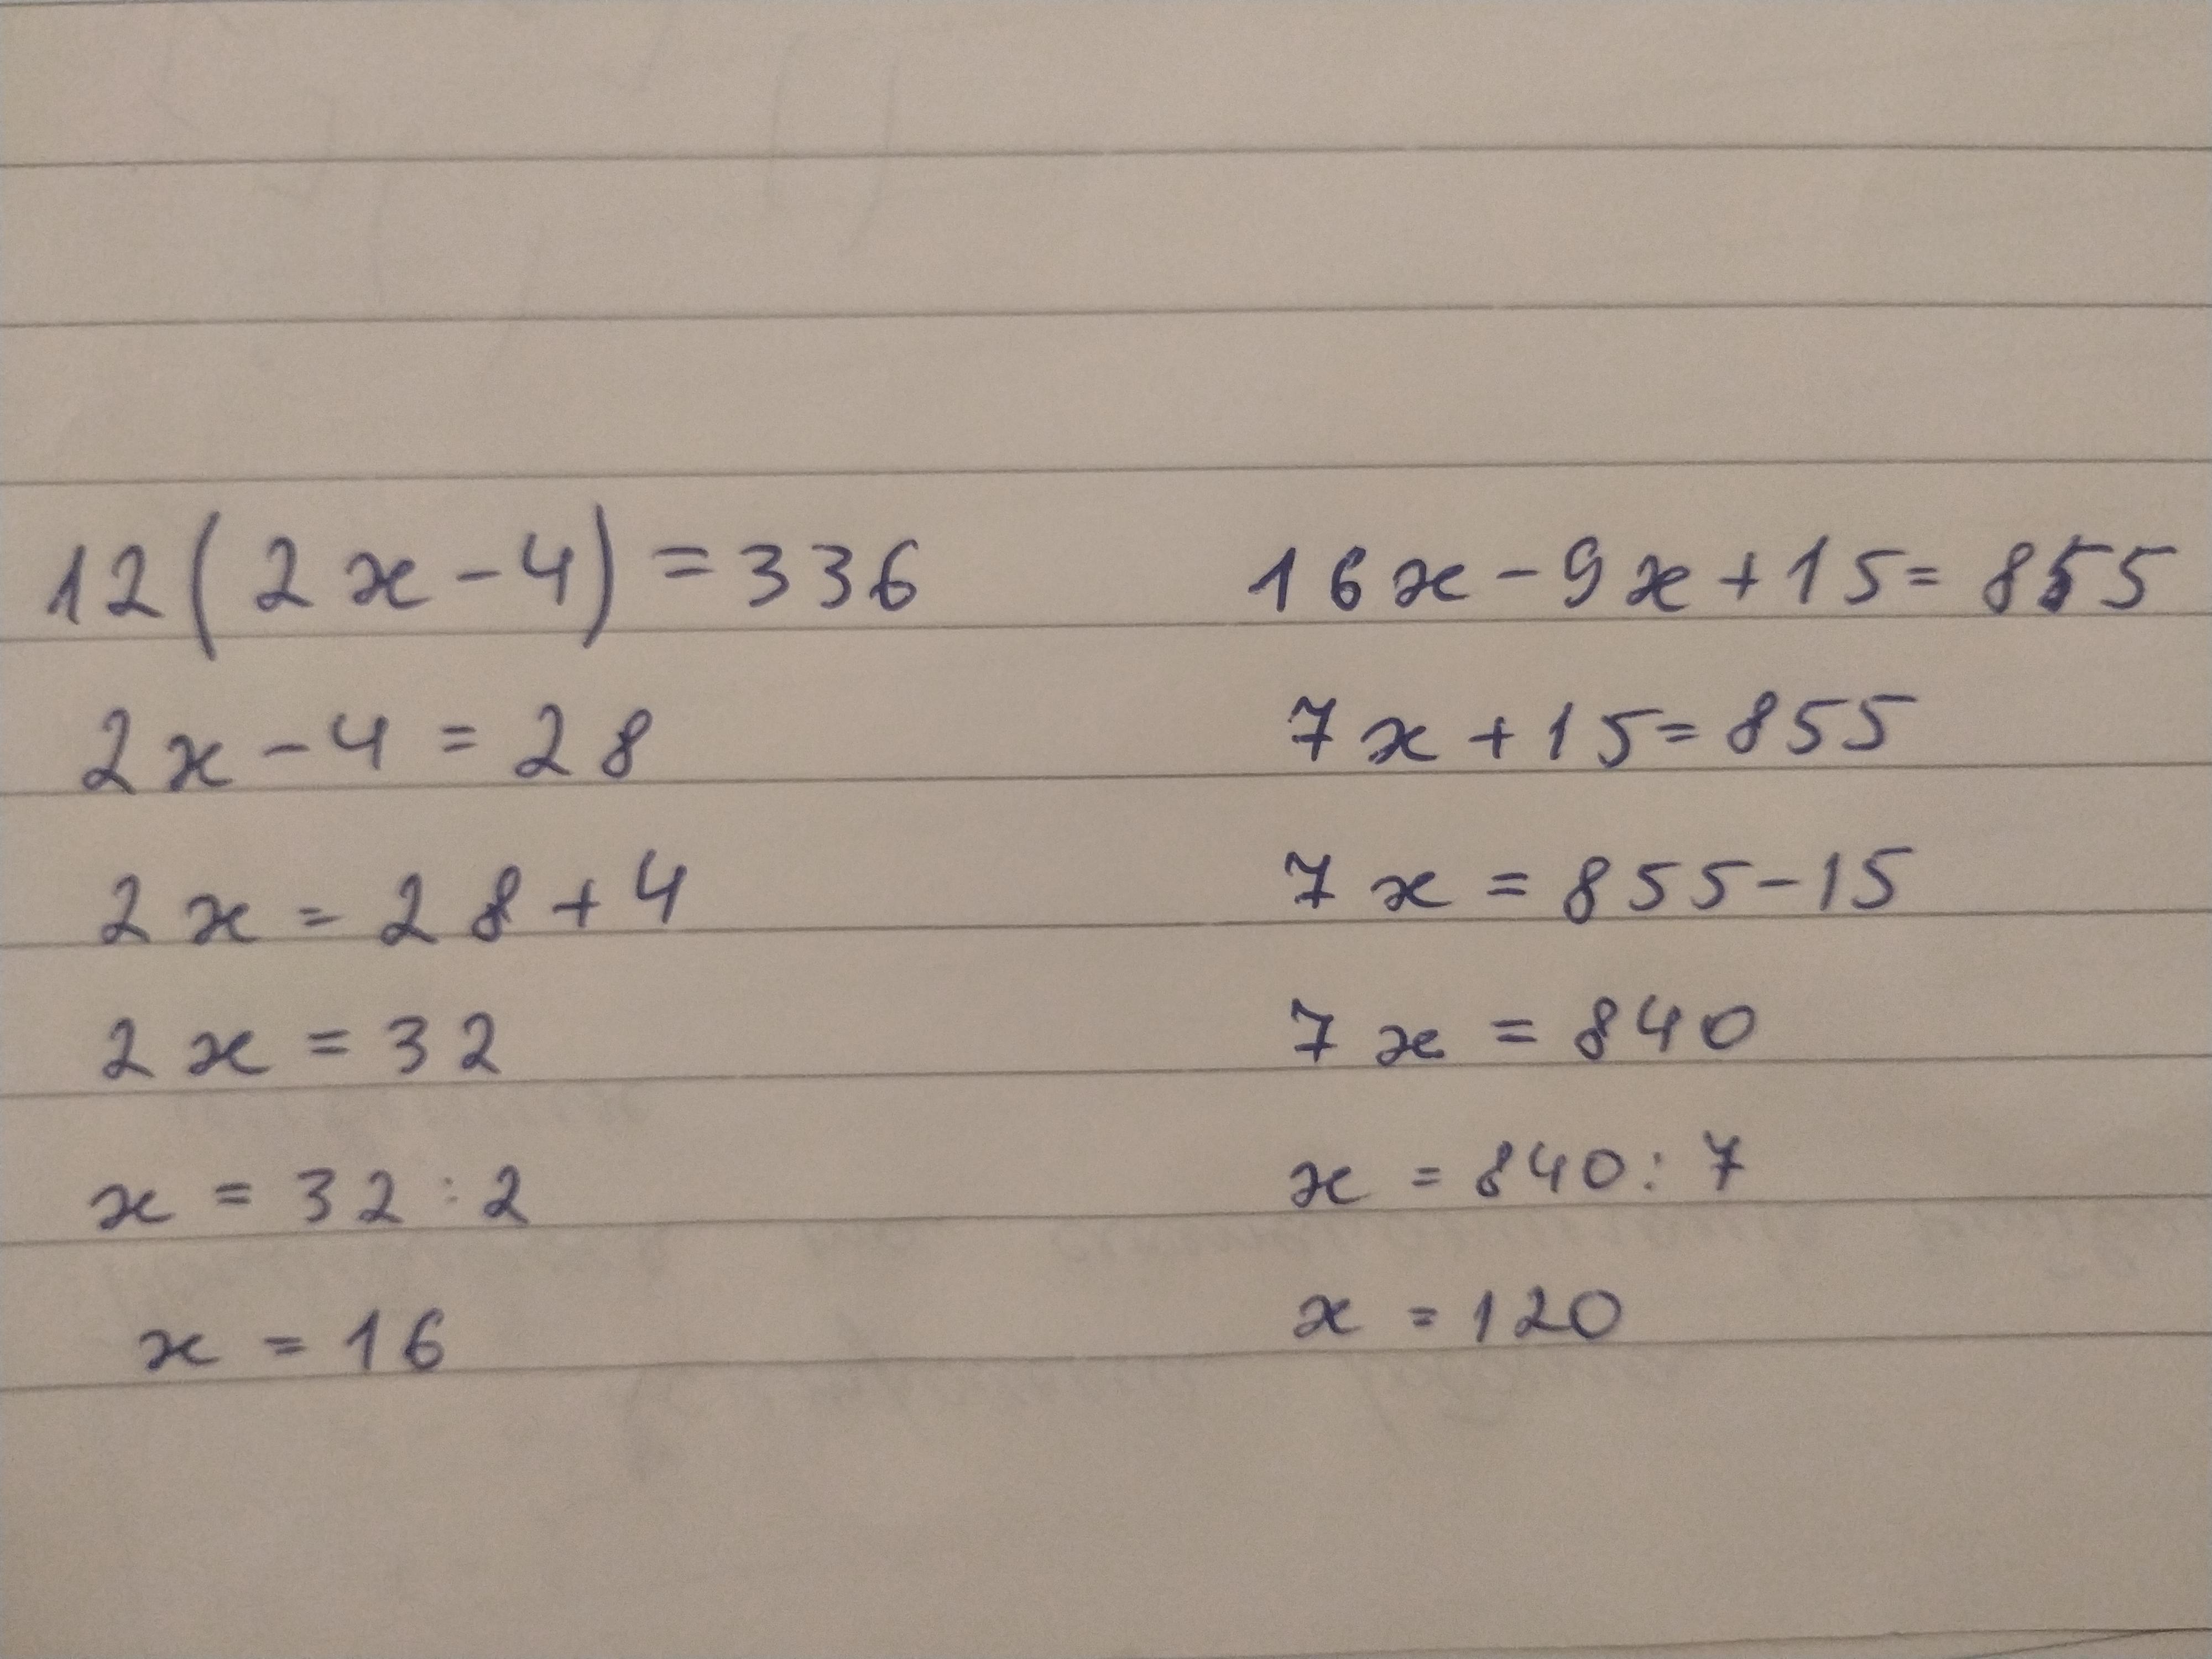 12(2x-4)=336
2x-4=28
2x=28+4
2x=32
x=32:2
x=16
16x-9x+15=855
7x+15=855
7x=855-15
7x=840
x=840:7
x=120